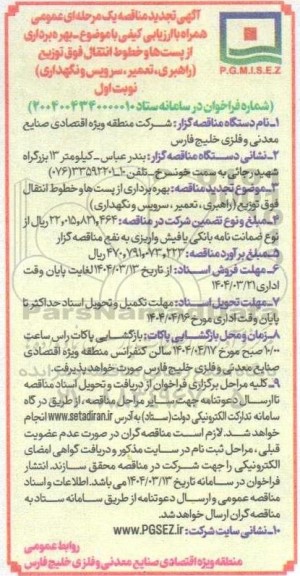 آگهی تجدید مناقصه یک مرحله‌ای عمومی
همراه با ارزیابی کیفی با موضوع-بهره برداری
از پست‌ها و خطوط انتقال فوق توزیع
(راهبری، تعمیر، سرویس و نگهداری)
نوبت اول
P.G.M.I.S.E.Z
(شماره فراخوان در سامانه ستاد ۲۰۰۴۰۰۴۳۴۰۰۰۰۰۱۰)
۱-نام دستگاه مناقصه گزار: شرکت منطقه ویژه اقتصادی صنایع
معدنی و فلزی خلیج فارس
۲-نشانی دستگاه مناقصه گزار: بندرعباس-کیلومتر ۱۳ بزرگراه
شهید رجائی به سمت خونسرخ-تلفن ۱۰-۳۳۵۹۲۲۰۱(۰۷۶)
۳-موضوع تجدید مناقصه: بهره برداری از پست‌ها و خطوط انتقال
فوق توزیع (راهبری، تعمیر، سرویس و نگهداری)
۴-مبلغ و نوع تضمین شرکت در مناقصه: ۲۲,۰۱۵,۸۲۱,۴۶۴ ریال از
نوع ضمانت نامه بانکی یا فیش واریزی به نفع مناقصه گزار
۵-مبلغ برآورد مناقصه: ۴۷۰,۷۹۱,۰۷۳,۲۲۳ ریال
۶-مهلت فروش اسناد: از تاریخ ۱۴۰۴/۰۳/۱۳ لغایت پایان وقت
اداری ۱۴۰۴/۰۳/۲۱
۷-مهلت تحویل اسناد: مهلت تکمیل و تحویل اسناد حداکثر تا
پایان وقت اداری مورخ ۱۴۰۴/۰۴/۱۶
۸-زمان و محل بازگشایی پاکات: بازگشایی پاکات راس ساعت
۱۰:۰۰ صبح مورخ ۱۴۰۴/۰۴/۱۷ سالن کنفرانس منطقه ویژه اقتصادی
صنایع معدنی و فلزی خلیج فارس صورت خواهد پذیرفت
۹-کلیه مراحل برگزاری فراخوان از دریافت و تحویل اسناد مناقصه
تا ارسال دعوتنامه جهت سایر مراحل مناقصه، از طریق درگاه
سامانه تدارکات الکترونیکی دولت (ستاد) به آدرس www.setadiran.ir انجام
خواهد شد. لازم است مناقصه گران در صورت عدم عضویت
قبلی، مراحل ثبت نام در سایت مذکور و دریافت گواهی امضای
الکترونیکی را جهت شرکت در مناقصه محقق سازند. انتشار
فراخوان در سامانه تاریخ ۱۴۰۴/۰۳/۱۳ می باشد. اطلاعات و اسناد
مناقصه عمومی و ارسال دعوتنامه از طریق سامانه ستاد به
مناقصه گران ارسال خواهد شد.
۱۰-نشانی سایت شرکت: www.PGSEZ.ir
روابط عمومی
منطقه ویژه اقتصادی صنایع معدنی و فلزی خلیج فارس